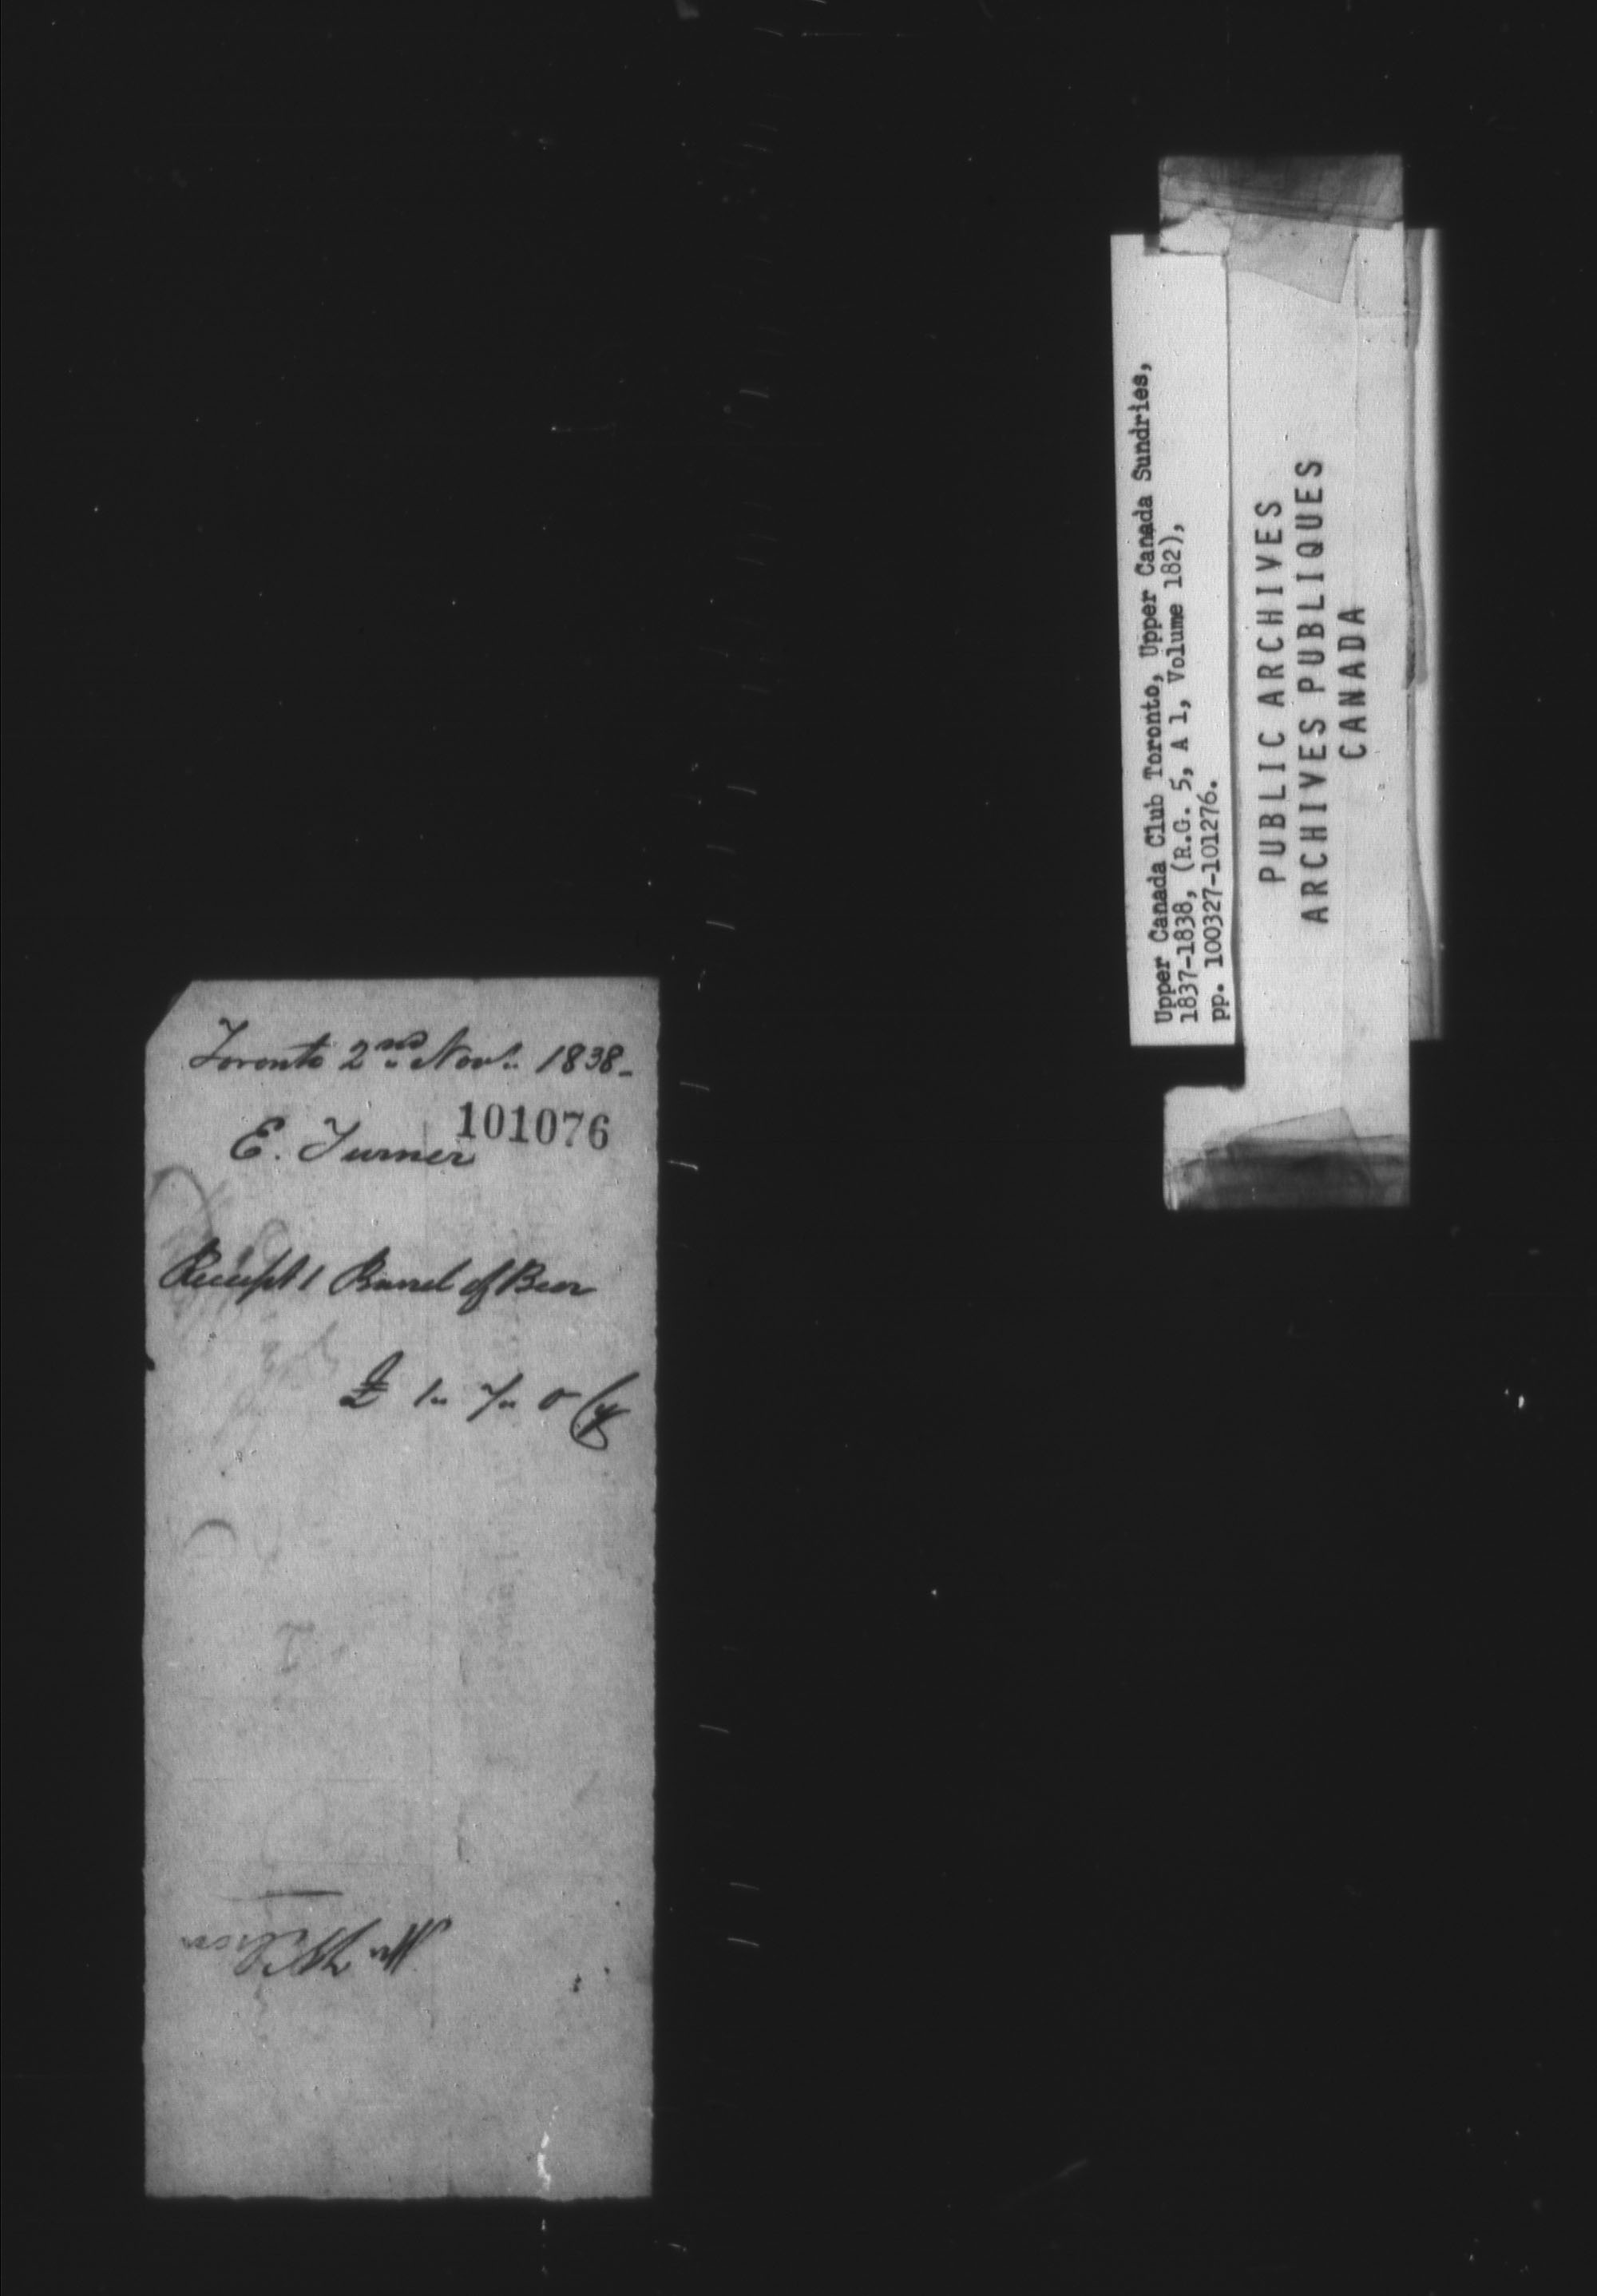 Toronto 2nd Novr. 1838-
101076
E. Turner
Receipt 1 Barrel of Beer
£ 1 " 7 " 0 Cy
Mr Wilson
Upper Canada Club Toronto, Upper Canada Sundries,
1837-1838, (R.G. 5, A 1, Volume 182),
pp. 100327-101276.
PUBLIC ARCHIVES
ARCHIVES PUBLIQUES
CANADA